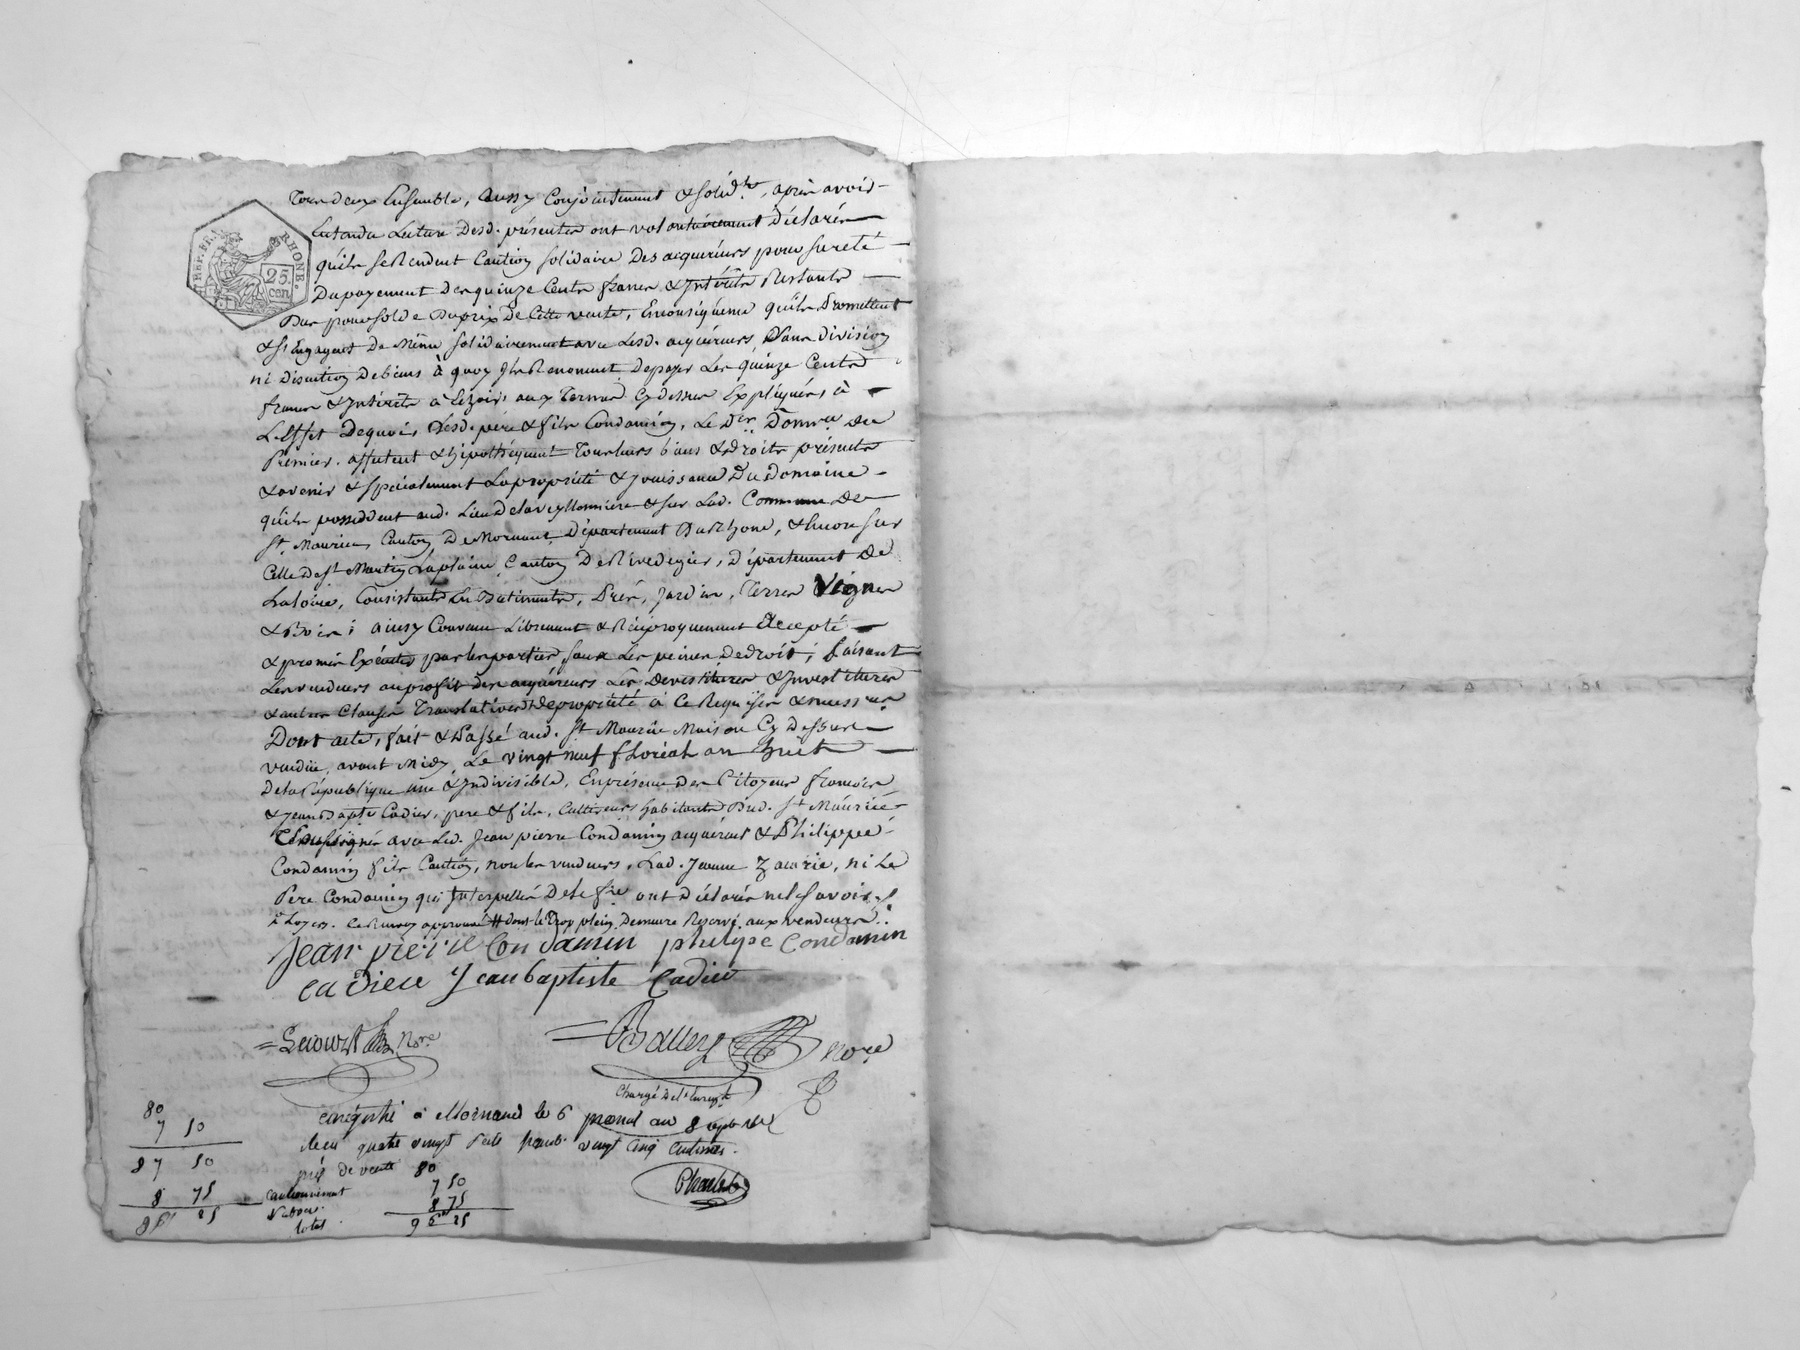 Tous deux Ensemble, aussy Conjointement & solid.t, après avoir
Entendu Lecture Desd. présentes ont volontairement Déclarés
qu'ils se Rendent Caution solidaire Des acquéreurs pour sureté
Du payement Des quinze Cents francs & Intérêts Restants
Dus pour solde Du prix De Cette vente, En conséquence qu'ils Promettent
& s'Engagent De Même solidairement avec Lesd. acquéreurs, Sans Division
ni Discution De biens à quoy Ils Renoncent, De payer Les quinze Cents
francs & Intérêts à Echoir, aux Termes Cy dessus Expliqués, à
L'Effet De quoi, Lesd. père & fils Condamin, Le Der Donre du
Premier. affectent & hipothéquent Tous leurs biens & droits présents
& avenir & spécialement La propriété & jouissance Du Domaine
qu'ils possèdent aud. Lieu De & sur Lad. Commune De
St Maurice, Canton De Mornant, Département Du Rhône, & Encore sur
Celle De St Martin Laplaine, Canton De Rivedegier, Département De
La Loire, Consistants En Batiments, Prés, Jardin, Terres Vignes
& Bois; ainsy Convenu Librement & Réciproquement accepté
& promis Exécuter par les parties, sous Les peines De droit; faisant
Les vendeurs au profit des acquéreurs Les Devestitures & Investitures
& autres Clauses Translatives De propriété à Ce Requises & necessres
Dont acte, fait & Passé aud. St Maurice Maison Cy Dessus
vendüe, avant Midy Le vingt neuf floréal an huit
De la République une & Indivisible, En présence Des Citoyens françois
& Jean Bapte Cadier, père & fils, Cultiveurs habitants Dud. St Maurice
Soussignés avec Led. Jean pierre Condamin acquéreur & Philippe
Condamin fils Caution, non les vendeurs, Lad. Jeanne Zacarie, ni Le
Père Condamin qui Interpellés De le fre ont Déclarés ne le savoir,
Ce Renvoy approuvé # dont le Trop plein Demeure Réservé aux vendeurs.
Jean pierre Condamin philipe Condamin
cadier Jean baptiste Cadier
Nore
Nore
Chargé De l'Enregt
enregistré à Mornand le 6 prerial an 8
Reçu quatre vingt seize francs vingt cinq centimes.
TIMB. DE LA REP. FRA.
RHONE.
25
cen
80
7 50
87 50
8 75
96 25
prix de vente 80
cautionnement 7 50
8 75
total 96 25